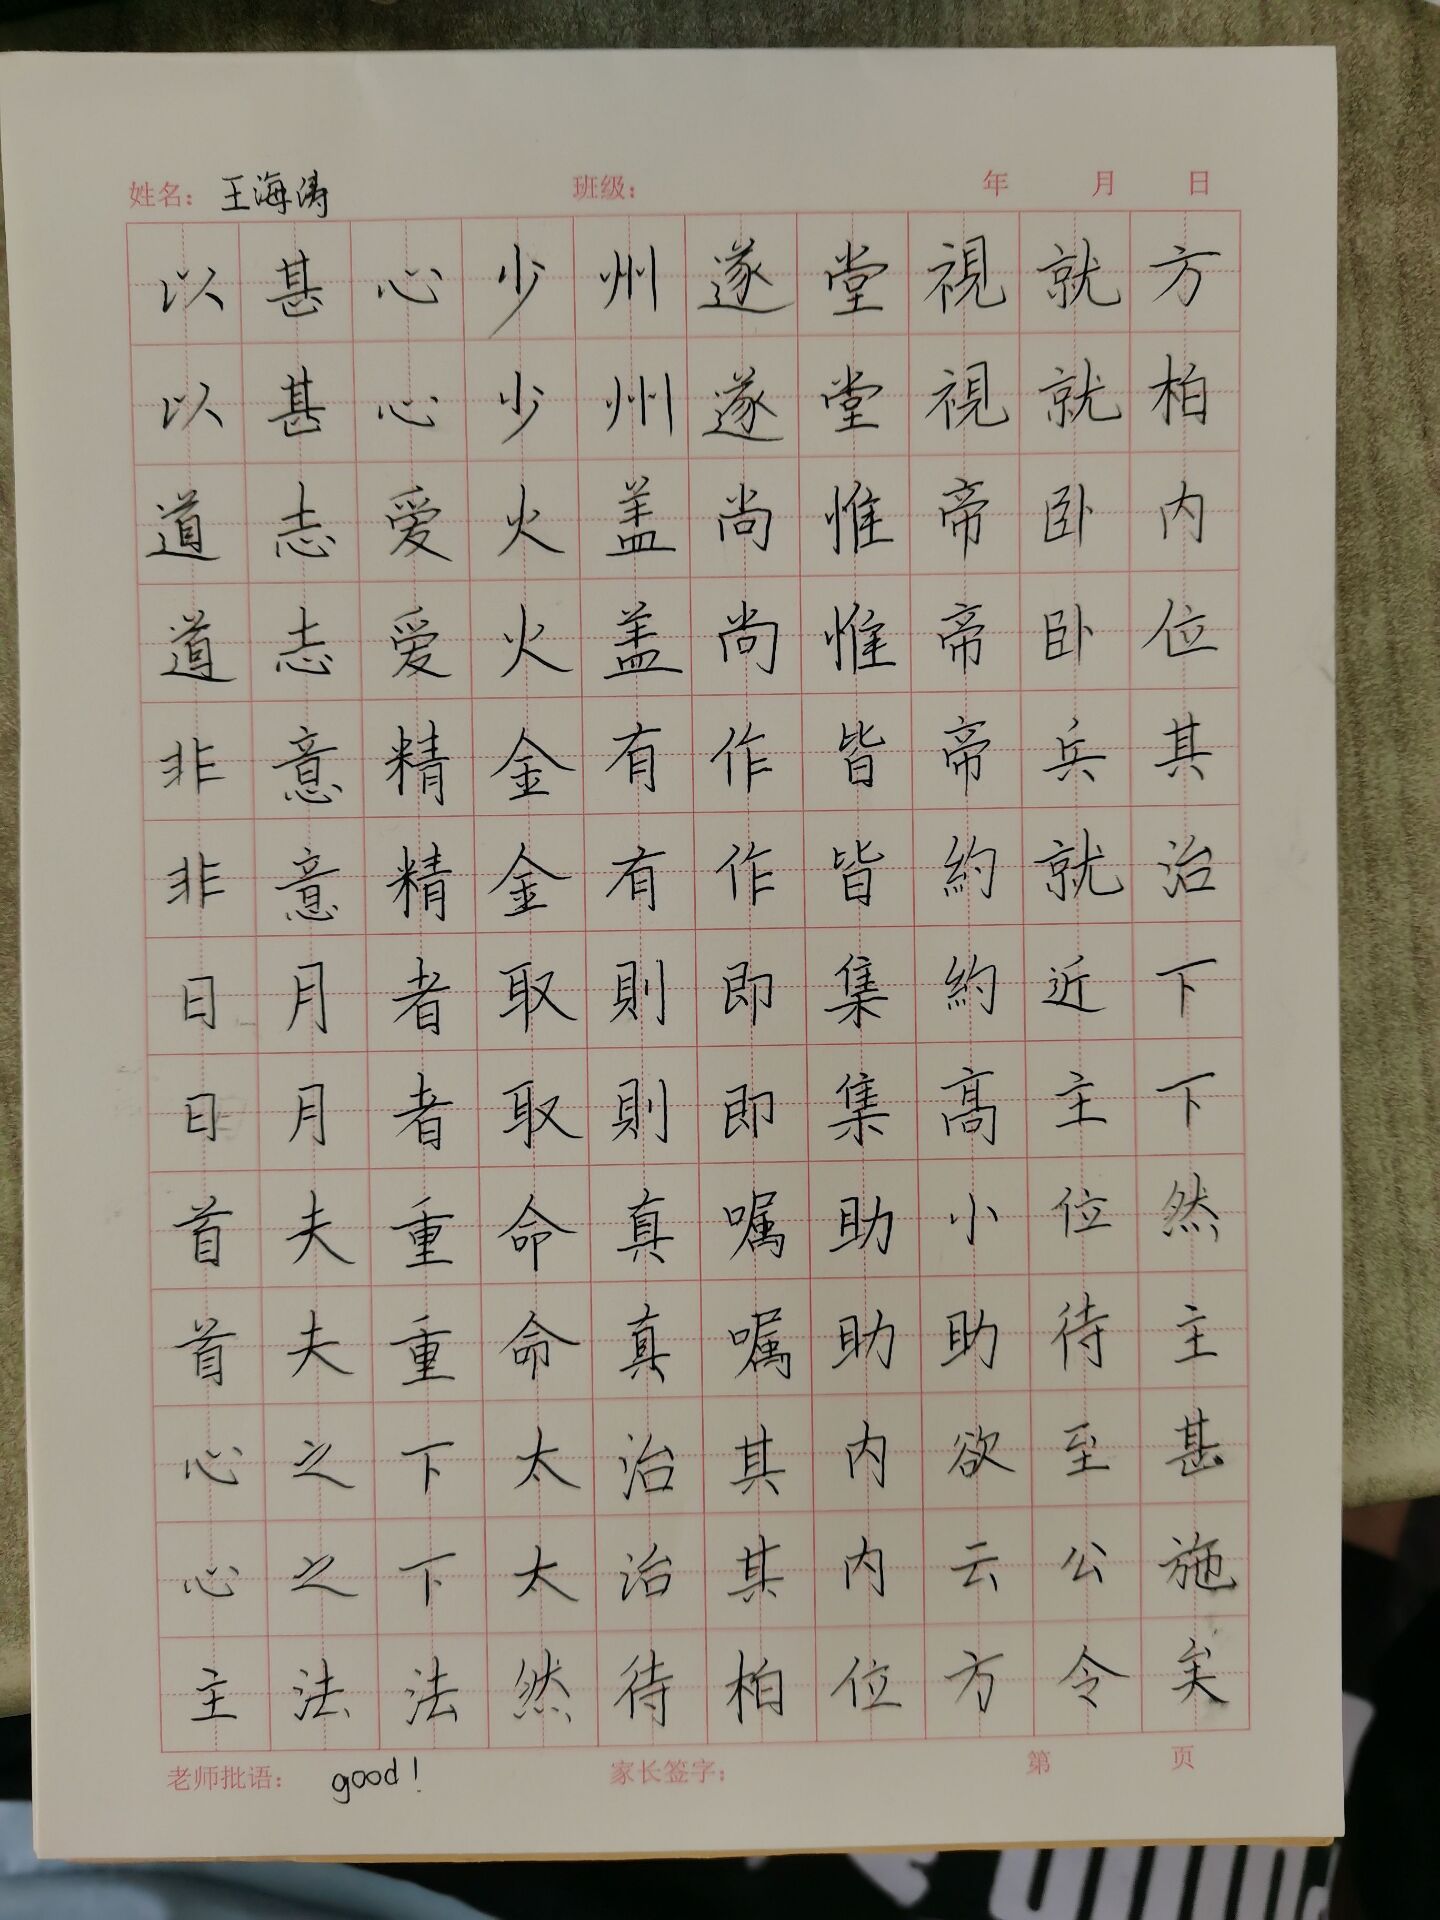 姓名：王海涛 班级： 年 月 日
以甚心少州遂堂視就方
以甚心少州遂堂視就柏
道志爱火盖尚惟帝卧内
道志爱火盖尚惟帝卧位
非意精金有作皆帝兵其
非意精金有作皆約就治
日月者取則即集約近下
日月者取則即集高主下
首夫重命真嘱助小位然
首夫重命真嘱助助待主
心之下太治其内欲至甚
心之下太治其内云公施
主法法然待柏位方令矣
老师批语： good! 家长签字： 第 页